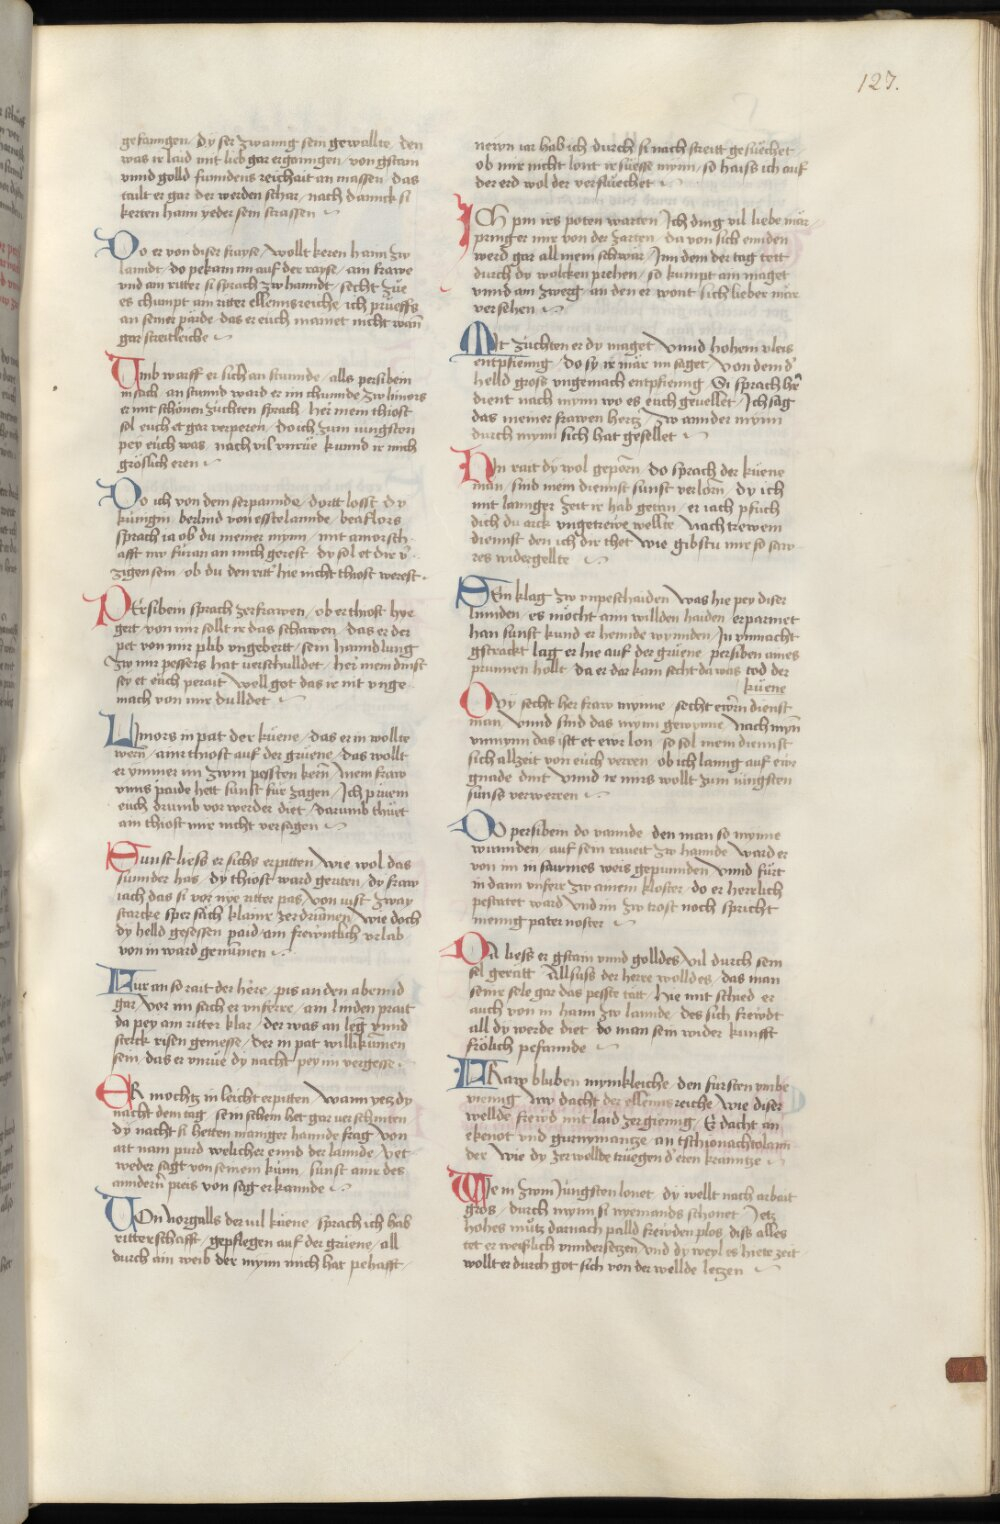 127.
gefanngen / dy ser zwanng sein gewallte / den
was ir laid mit lieb gar ergainngen / von gstain
vnnd golld funndens reichait an massen / das
tailt er gar der werden schar / nach dannck si
kerten hann yeder sein strassen
Do er von diser strayse / wollt keren hann zw
lanndt / do pekam im auf der rayse / ain frawe
vnd ain ritter si sprach zw hanndt / secht zue
es chumpt ain ritter ellennsreiche / ich prueffs
an seiner pärde das er euch mainet nicht wan
gar streitleiche
Umb warff er sich an stunnde / alls persibein
in sach / an stunnd ward er im chunnde zw limors
er mit schönen züchten sprach / hei mein thiost
sol euch et gar verperen / do ich zum iungsten
pey euch was nach vil vnrue kunnd ir mich
gröslich eren
Do ich von dem serpannde / dortt losst dy
künigin / berlind von esstelannde / beaflors
sprach ia ob du meiner mynn / mit amorsch-
afft nw füran an mich gerest / dy sol et dir v
zigen sein / ob du den ritt hie nicht thiost werest.
PErsibein sprach zer frawen / ob er thiost hye
gert / von mir sollt ir das schawen / das er der
pet von mir plib vngebertt / sein hanndlung
zw mir pessers hat verschulldet / hei mein dinst
sey et euch perait / well got das ir nit vnge
mach von mir dulldet
Limors in pat der küene / das er in wollte
wern / ainr thiost auf der grüene / das wollt
er ymmer im zwm pessten kern / Mein fraw
vnns paide hett sunst für zagen / Ich pruem
euch drumb vor werder diet / darumb thuet
ain thiost mir nicht versagen
Sunst liess er sichs erpitten / wie wol das
sunnder has / dy thiost ward geriten / dy fraw
iach das si vor nye ritter pas / von iust zway
starcke sper sach klainr zerdrumen / wie doch
dy helld gesessen paid / ain frewntlich vrlab
von in ward genumen
Fur an so rait der here / pis an den abennd
gar / vor im sach er vnferre / ain linden prait
da pey ain ritter klar / der was an leng vnnd
sterck risen gemesse / der in pat willikumen
sein / das er vnrue dy nacht pey im vergesse.
ER mochtz in leicht erpitten / wann yetz dy
nacht dem tag / sein schein het gar verschniten
dy nacht si hetten maniger hannde frag / von
art nam purd welicher ennd der lannde / yet
weder sagt von seinem künn / sunst ainr des
anndern preis von sag erkannde
VOn norgalls der vil küene / sprach ich hab
ritterschafft / gepflegen auf der grüene / all
durch ain weib der mynn mich hat pehafft /
newn iar hab ich durch si nach streitt gesuechet
ob mir nicht lont ir suesse mynn / so haiss ich auf
der erd wol der verfluechet
ICh pin irs poten warten / Ich ding vil liebe mär
pringer mir von der zarten / da von sich ennden
werd gar all mein schwär / Inn dem der tag tett
durch dy wolcken prehen / so kumpt ain maget
vnnd ain zwerg / an den er wont sich lieber mär
versehen
Mit züchten er dy maget / vnnd hohem vleis
entpfienng / do sy ir mär im saget / von dem d
helld gross vngemach entpfienng / Si sprach her
dient nach mynn wo es euch geuellet / Ich sag
das meiner frawen hertz / zw annder mynn
durch mynn sich hat gesellet
Nun rait dy wol geporn / do sprach der küene
man / sind mein diennst sunst verlorn / dy ich
mit lannger zeit ir hab getan / er iach pfuch
dich du arck vngetrewe wellte / Nach trewem
diennst den ich dir thet / wie gibstu mir so saw
res widergellte
Sein klag zw vnpeschaiden / was hie pey diser
linnden / es möcht ain willden haiden erparmet
han / sunst kund er hennde wynnden / In vnmacht
gstrackt lag er hie auf der grüene / persiben aines
prunnen hollt / da er dar kam secht da was tod der
küene
Ody secht her fraw mynne / secht ewrn dienst
man / vnnd sind das mynn gewynne / Nach mynn
vnmynn das istt et ewr lon / so sol mein diennst
sich allzeit von euch verren / ob ich lanng auf ewr
gnade dint / vnnd ir mirs wollt zum iüngsten
sunss verwerren
Do persibein do vannde / den man so mynne
wunnden / auf sein rauеit zw hannde / ward er
von im in sawmes weis gepunnden / vnnd fürt
in dann vnferr zw ainem kloster / do er herrlich
pestatet ward / vnd im zw trost noch spricht
menng pater noster
Da liess er gstain vnnd golldes / vil durch sein
sel geratt / Allsuss der herre wolldes / das man
seinr sele gar das pesste tatt / Hie mit schied er
auch von in hann zw lannde / des sich frewdt
all dy werde diet / do man sein wider kunfft
frölich pefannde
FRaw bliben mynnkleiche / den fursten vmbe
vienng / nw dacht der ellennsreiche / wie diser
wellde frewd mit laid zergienng / Er dacht an
ekenot vnd gurnymantze / an tschionachtolann
der / wie dy zer wellde truegen d'eren kranntze
Wie in zwm iüngsten lonet / dy wellt nach arbait
gros / durch mynn si nyemands schonet / Ietz
hohes mutz darnach palld frewden plos / diss alles
tet er weislich vnndersetzen / vnd dy weyl es hiete zeit
wollt er durch got sich von der wellde letzen